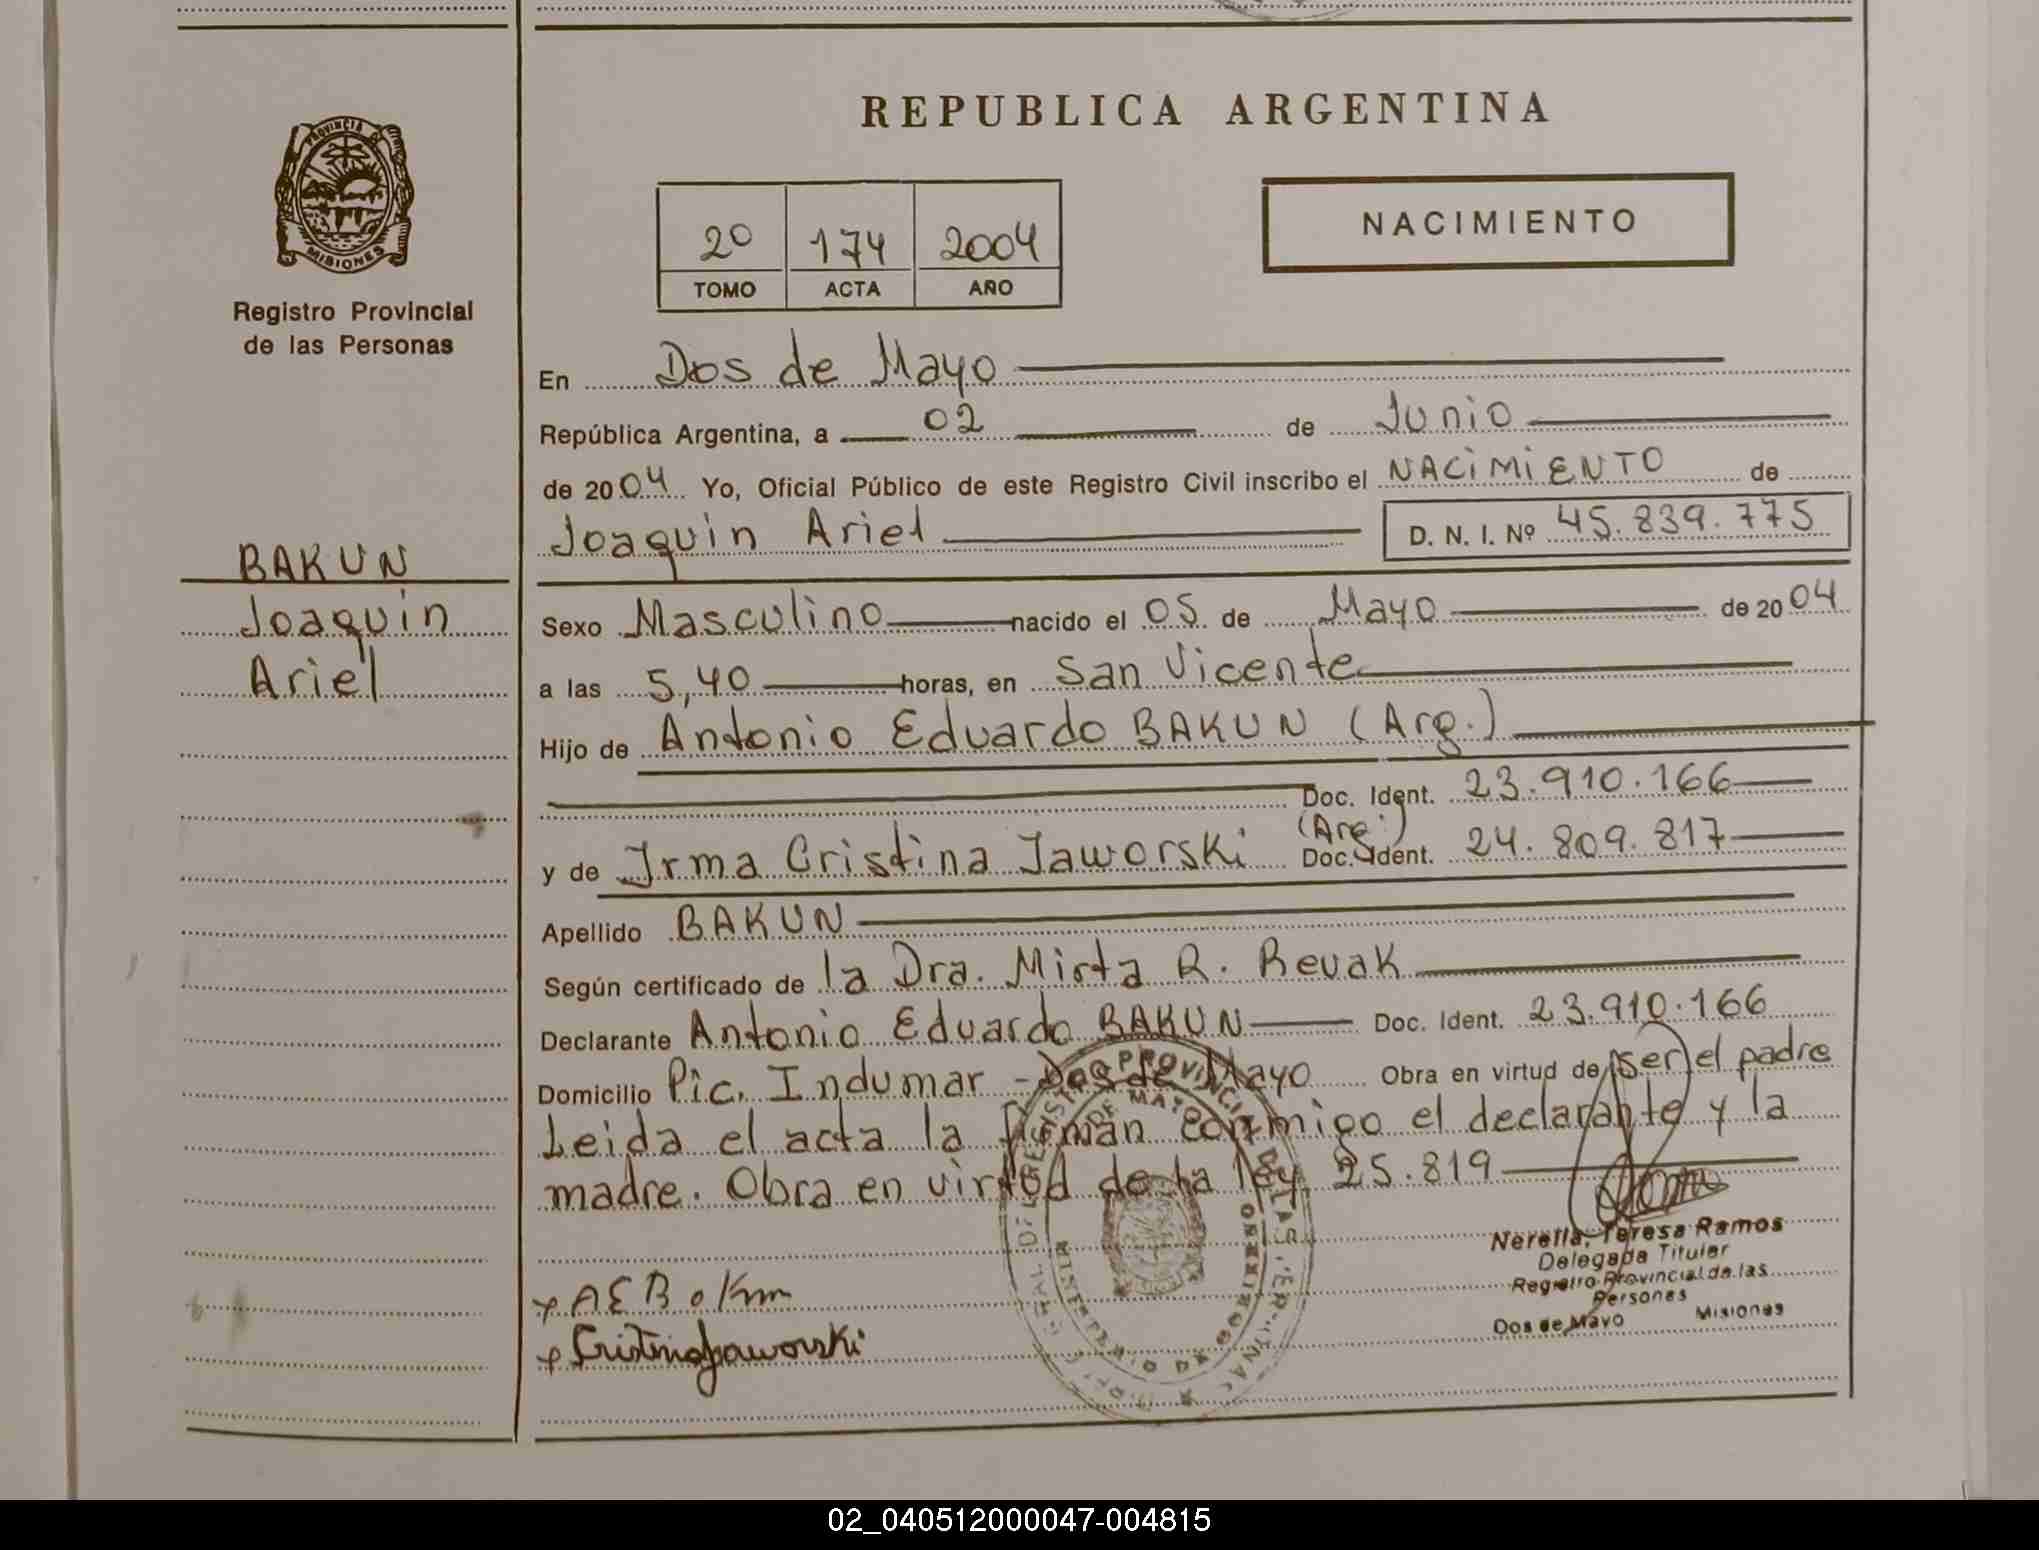 REPUBLICA ARGENTINA
PROVINCIA DE
MISIONES
Registro Provincial
de las Personas
2º 174 2004
TOMO ACTA AÑO
NACIMIENTO
En Dos de Mayo
República Argentina, a 02 de Junio
de 2004 Yo, Oficial Público de este Registro Civil inscribo el NACIMIENTO de
Joaquin Ariel D. N. I. Nº 45.839.775
BAKUN
Joaquin
Ariel
Sexo Masculino nacido el 05 de Mayo de 2004
a las 5,40 horas, en San Vicente
Hijo de Antonio Eduardo BAKUN (Arg.)
Doc. Ident. 23.910.166
y de Irma Cristina Jaworski (Arg.) Doc. Ident. 24.809.817
Apellido BAKUN
Según certificado de la Dra. Mirta R. Revak
Declarante Antonio Eduardo BAKUN Doc. Ident. 23.910.166
Domicilio Pic. Indumar - Dos de Mayo Obra en virtud de ser el padre
Leida el acta la firman conmigo el declarante y la
madre. Obra en virtud de la ley 25.819
Nerella, Teresa Ramos
Delegada Titular
Registro Provincial de las
Persones
Dos de Mayo Misiones
Cristina Jaworski
02_040512000047-004815